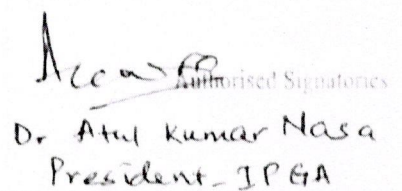 Authorised Signatories
Dr. Atul Kumar Nasa
President - IPGA